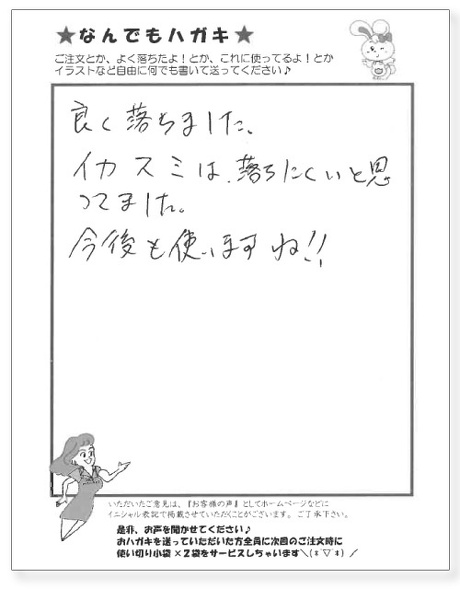 ★なんでもハガキ★
ご注文とか、よく落ちたよ!とか、これに使ってるよ!とか
イラストなど自由に何でも書いて送ってください♪
良く落ちました、
イカスミは、落ちにくいと思
ってました。
今後も使いますね!!
いただいたご意見は、『お客様の声』としてホームページなどに
イニシャル表記で掲載させていただくことがございます。ご了承下さい。
是非、お声を聞かせてください♪
おハガキを送っていただいた方全員に次回のご注文時に
使い切り小袋×2袋をサービスしちゃいます＼(*´▽`*)／